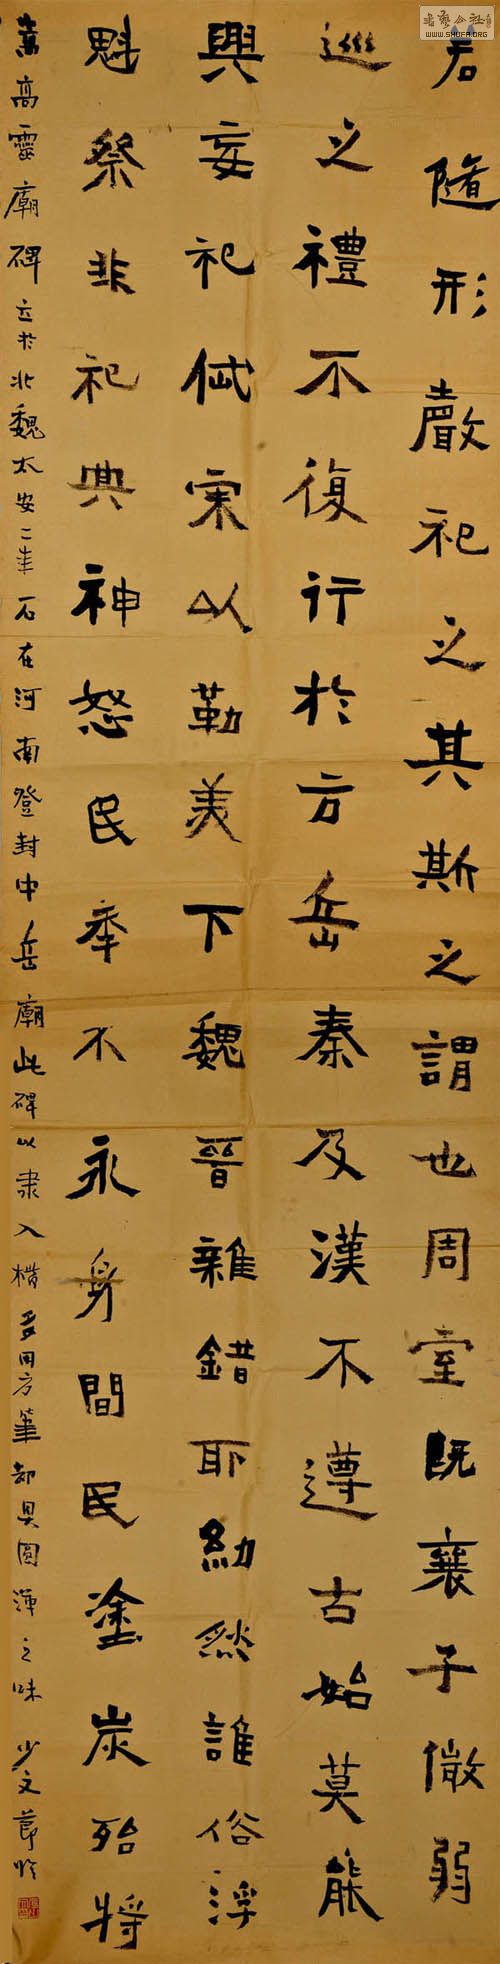 若隨形聲祀之其斯之謂也周室既襄子微弱
巡之禮不復行於方岳秦及漢不遵古始莫能
興妄祀岱宗以勒美下魏晉雜錯耶幼然誰俗浮
魁祭非祀典神怒民率不永身間民塗炭殆將
嵩高靈廟碑立於北魏太安二年石在河南登封中岳廟此碑以隶入楷多用方筆却具圆渾之味 少文節臨
WWW.SHUFA.ORG